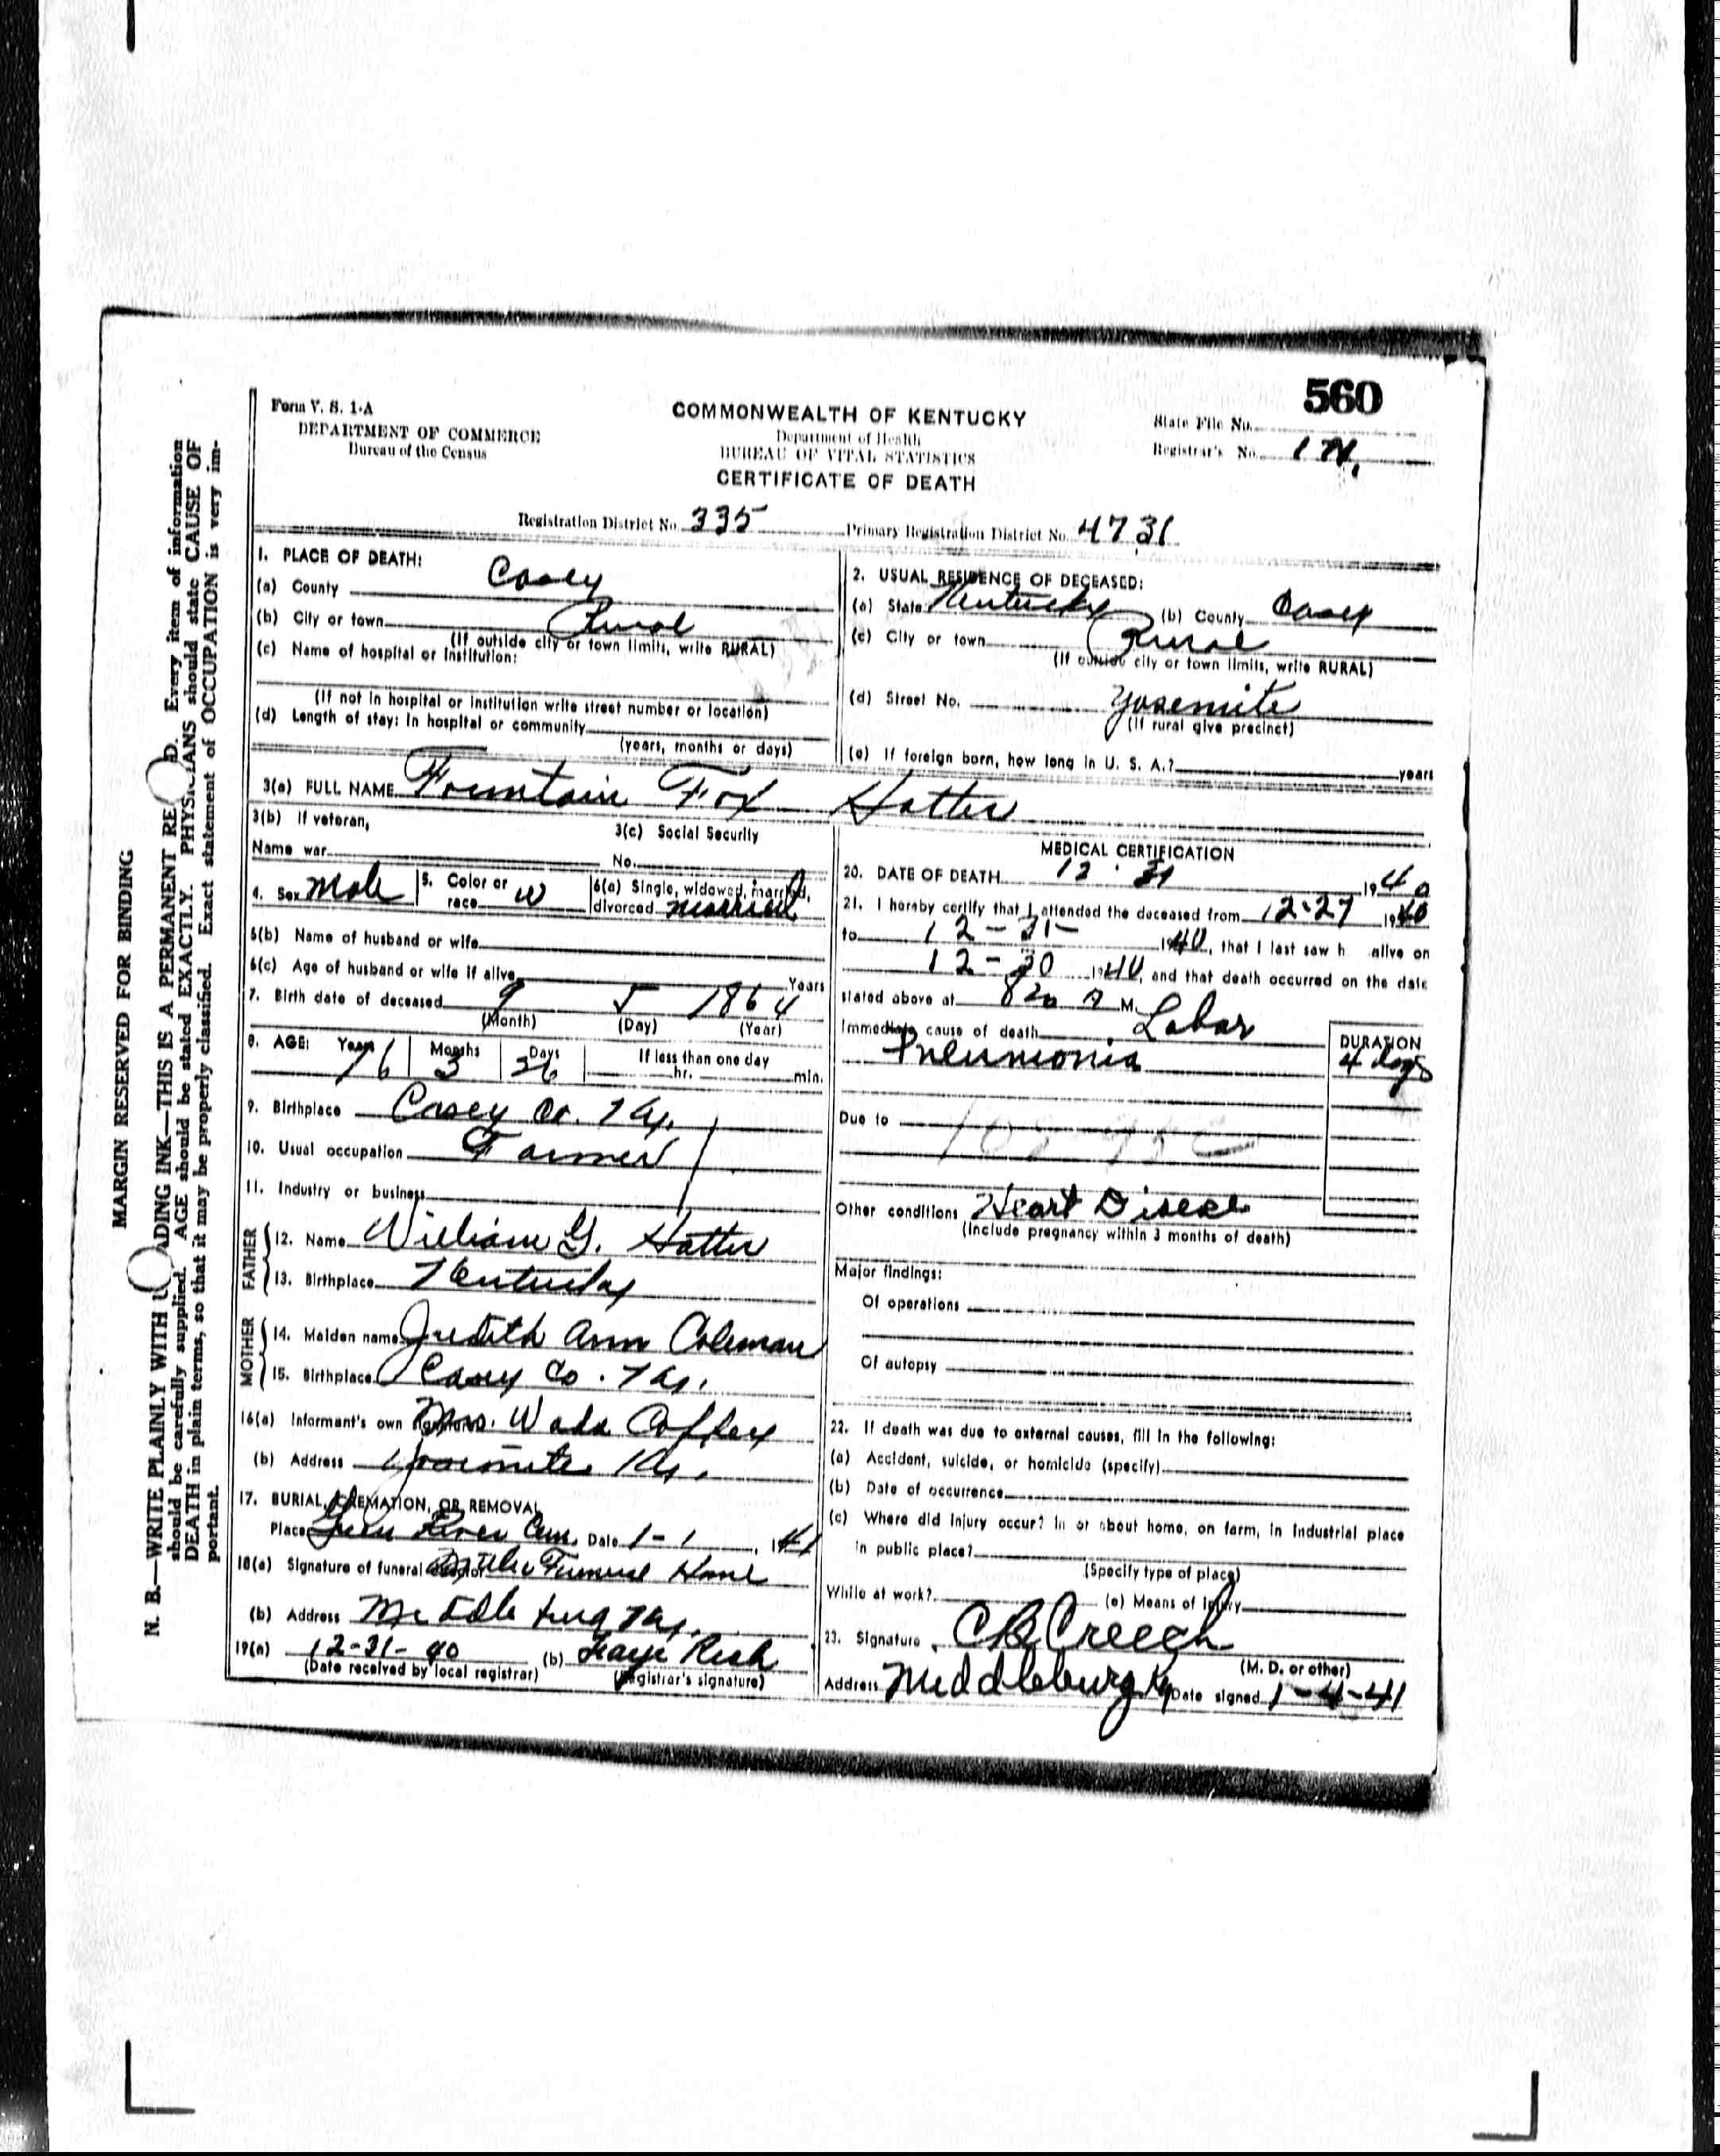 560
Form V. S. 1-A
DEPARTMENT OF COMMERCE
Bureau of the Census
COMMONWEALTH OF KENTUCKY
Department of Health
BUREAU OF VITAL STATISTICS
CERTIFICATE OF DEATH
State File No.
Registrar's No.
Registration District No. 335 Primary Registration District No. 4731
1. PLACE OF DEATH:
(a) County Casey
(b) City or town Rural
(If outside city or town limits, write RURAL)
(c) Name of hospital or institution:
(If not in hospital or institution write street number or location)
(d) Length of stay: In hospital or community
(years, months or days)
2. USUAL RESIDENCE OF DECEASED:
(a) State Kentucky (b) County Casey
(c) City or town Rural
(If outside city or town limits, write RURAL)
(d) Street No. Yosemite
(If rural give precinct)
(e) If foreign born, how long in U. S. A.? years
3(a) FULL NAME Fountain Fox Hatter
3(b) If veteran,
Name war
3(c) Social Security
No.
4. Sex Male 5. Color or race W 6(a) Single, widowed, married, divorced married
6(b) Name of husband or wife
6(c) Age of husband or wife if alive Years
7. Birth date of deceased 9 5 1864
(Month) (Day) (Year)
8. AGE: Years 76 Months 3 Days 26 If less than one day
hr. min.
9. Birthplace Casey Co. Ky.
10. Usual occupation Farmer
11. Industry or business
FATHER
12. Name William G. Hatter
13. Birthplace Kentucky
MOTHER
14. Maiden name Judith Ann Coleman
15. Birthplace Casey Co. Ky.
16(a) Informant's own Mrs. Wade Coffey
(b) Address Yosemite Ky.
17. BURIAL, CREMATION, OR REMOVAL
Place Green River Cem. Date 1-1, 1941
18(a) Signature of funeral Funeral Home
(b) Address Middleburg Ky.
19(a) 12-31-40 (b) Faye Rich
(Date received by local registrar) (Registrar's signature)
MEDICAL CERTIFICATION
20. DATE OF DEATH 12-31 1940
21. I hereby certify that I attended the deceased from 12-27 1940
to 12-31- 1940, that I last saw h alive on
12-30 1940, and that death occurred on the date
stated above at 820 A M.
Immediate cause of death Lobar
Pneumonia
DURATION
4 days
Due to
Other conditions Heart Disease
(Include pregnancy within 3 months of death)
Major findings:
Of operations
Of autopsy
22. If death was due to external causes, fill in the following:
(a) Accident, suicide, or homicide (specify)
(b) Date of occurrence
(c) Where did injury occur? In or about home, on farm, in industrial place
in public place?
(Specify type of place)
While at work? (e) Means of injury
23. Signature C B Creech
(M. D. or other)
Address Middleburg Ky Date signed 1-4-41
MARGIN RESERVED FOR BINDING
N. B.—WRITE PLAINLY WITH UNFADING INK—THIS IS A PERMANENT RECORD. Every item of information
should be carefully supplied. AGE should be stated EXACTLY. PHYSICIANS should state CAUSE OF
DEATH in plain terms, so that it may be properly classified. Exact statement of OCCUPATION is very im-
portant.